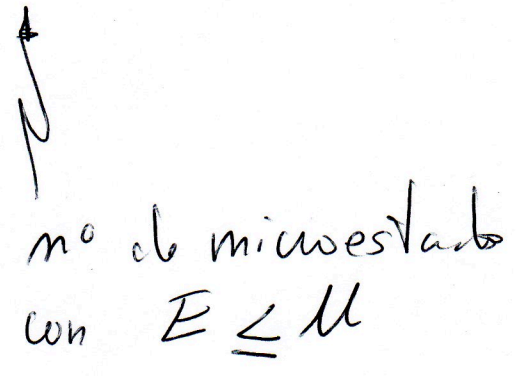 nº de microestados
con E ≤ U